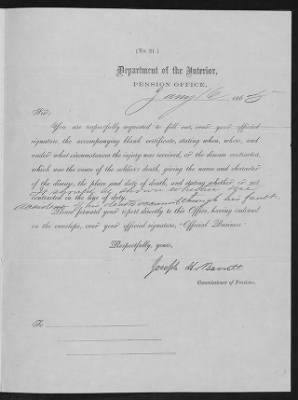 (No. 21.)
Department of the Interior,
PENSION OFFICE,
Jany 186
Sir:
You are respectfully requested to fill out, over your official
signature, the accompanying blank certificate, stating when, where, and
under what circumstances the injury was received, or the disease contracted,
which was the cause of the soldier's death, giving the name and character
of the disease, the place and date of death, and stating whether or not
contracted in the line of duty.
his death through his fault
Please forward your report directly to this Office, having endorsed
on the envelope, over your official signature, "Official Business."
Respectfully, yours,
Joseph H. Barrett
Commissioner of Pensions.
To